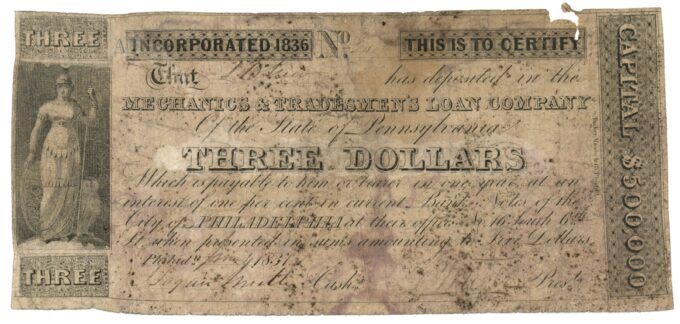 THREE
INCORPORATED 1836 No. THIS IS TO CERTIFY
That has deposited in the
MECHANICS & TRADESMEN'S LOAN COMPANY
Of the State of Pennsylvania
THREE DOLLARS
Which is payable to him or bearer in one year at an
interest of one per cent in current Bank Notes of the
City of PHILADELPHIA at their office No. 16 South 6th
St. when presented in sums amounting to Dollars
Philada 1837
Cashr. Prest.
THREE
CAPITAL $500,000